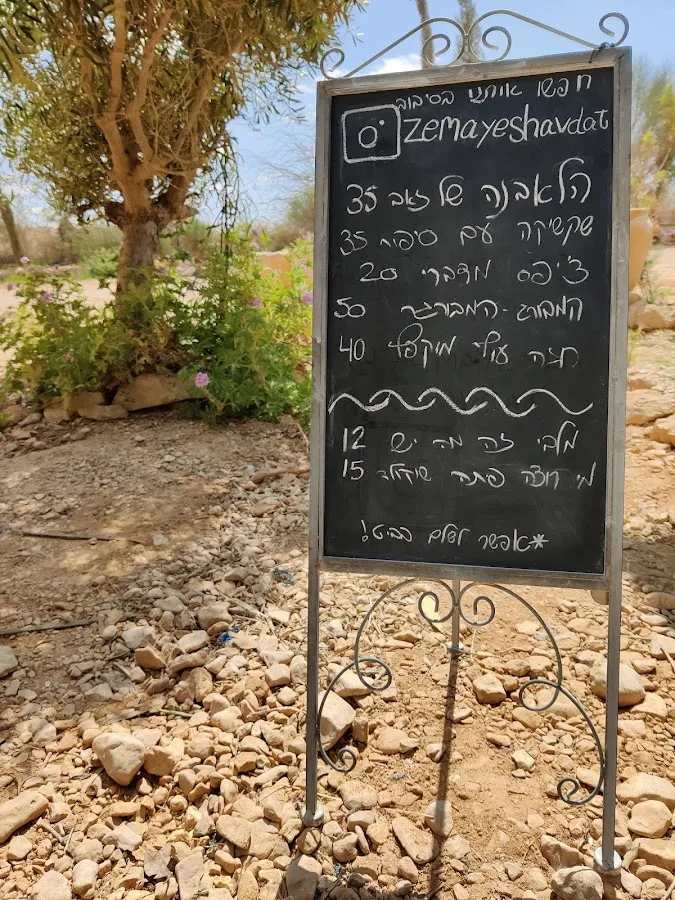 חפשו אותנו בסיבוב
zemayeshavdat
הלאבנה של זאב 35
שקשוקה עם סיפור 35
צ'יפס מדברי 20
המבורג-המבורגר 50
חזה עוף מוקפץ 40
מלבי זה מה יש 12
מי רוצה פתה שוקולד 15
*אפשר לשלם בביט!